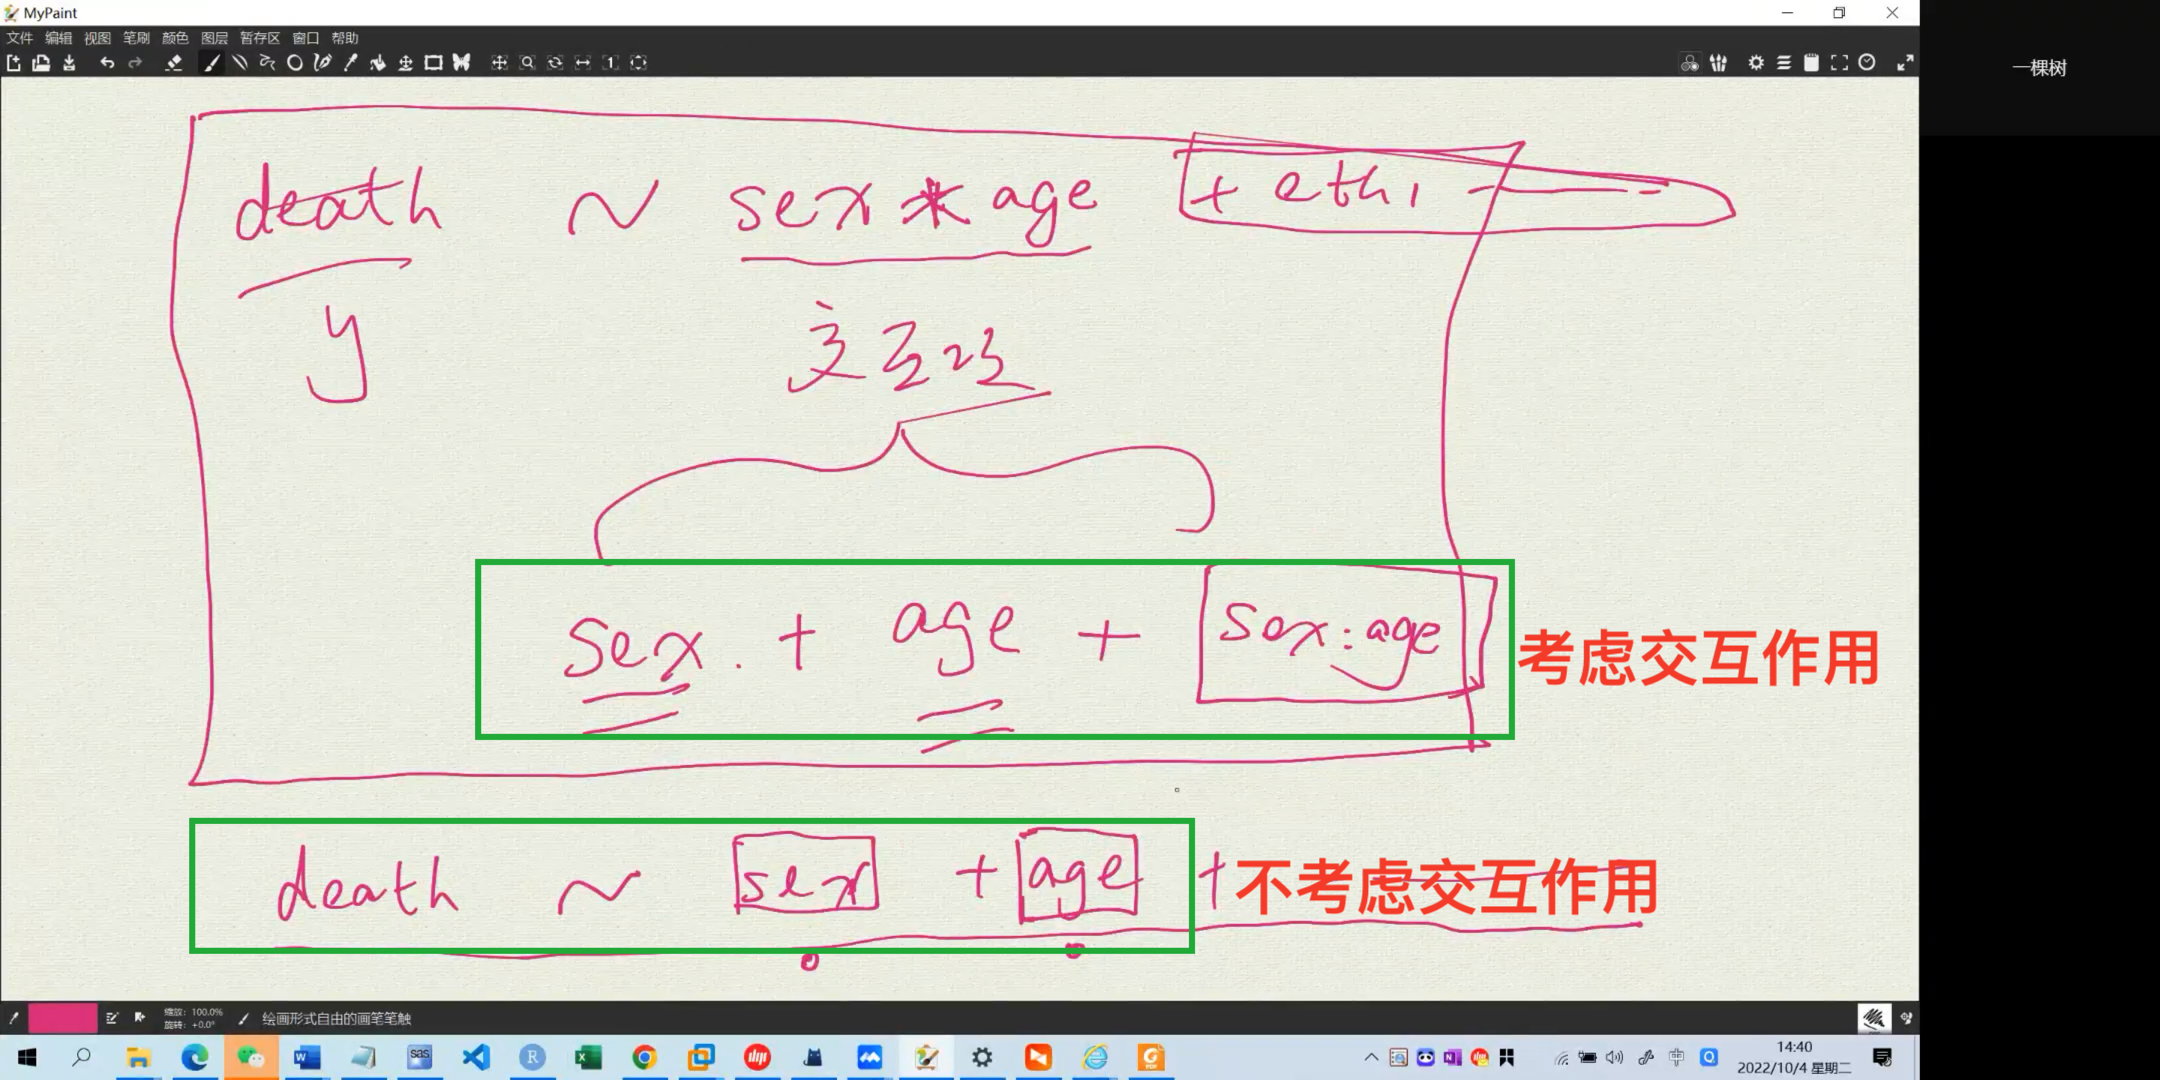 MyPaint
文件 编辑 视图 笔刷 颜色 图层 暂存区 窗口 帮助
一棵树
death ~ sex * age + ethi - —— -
y
交互项
sex . + age + sex:age
考虑交互作用
death ~ sex + age +
不考虑交互作用
缩放: 100.0%
旋转: +0.0°
绘画形式自由的画笔笔触
14:40
2022/10/4 星期二